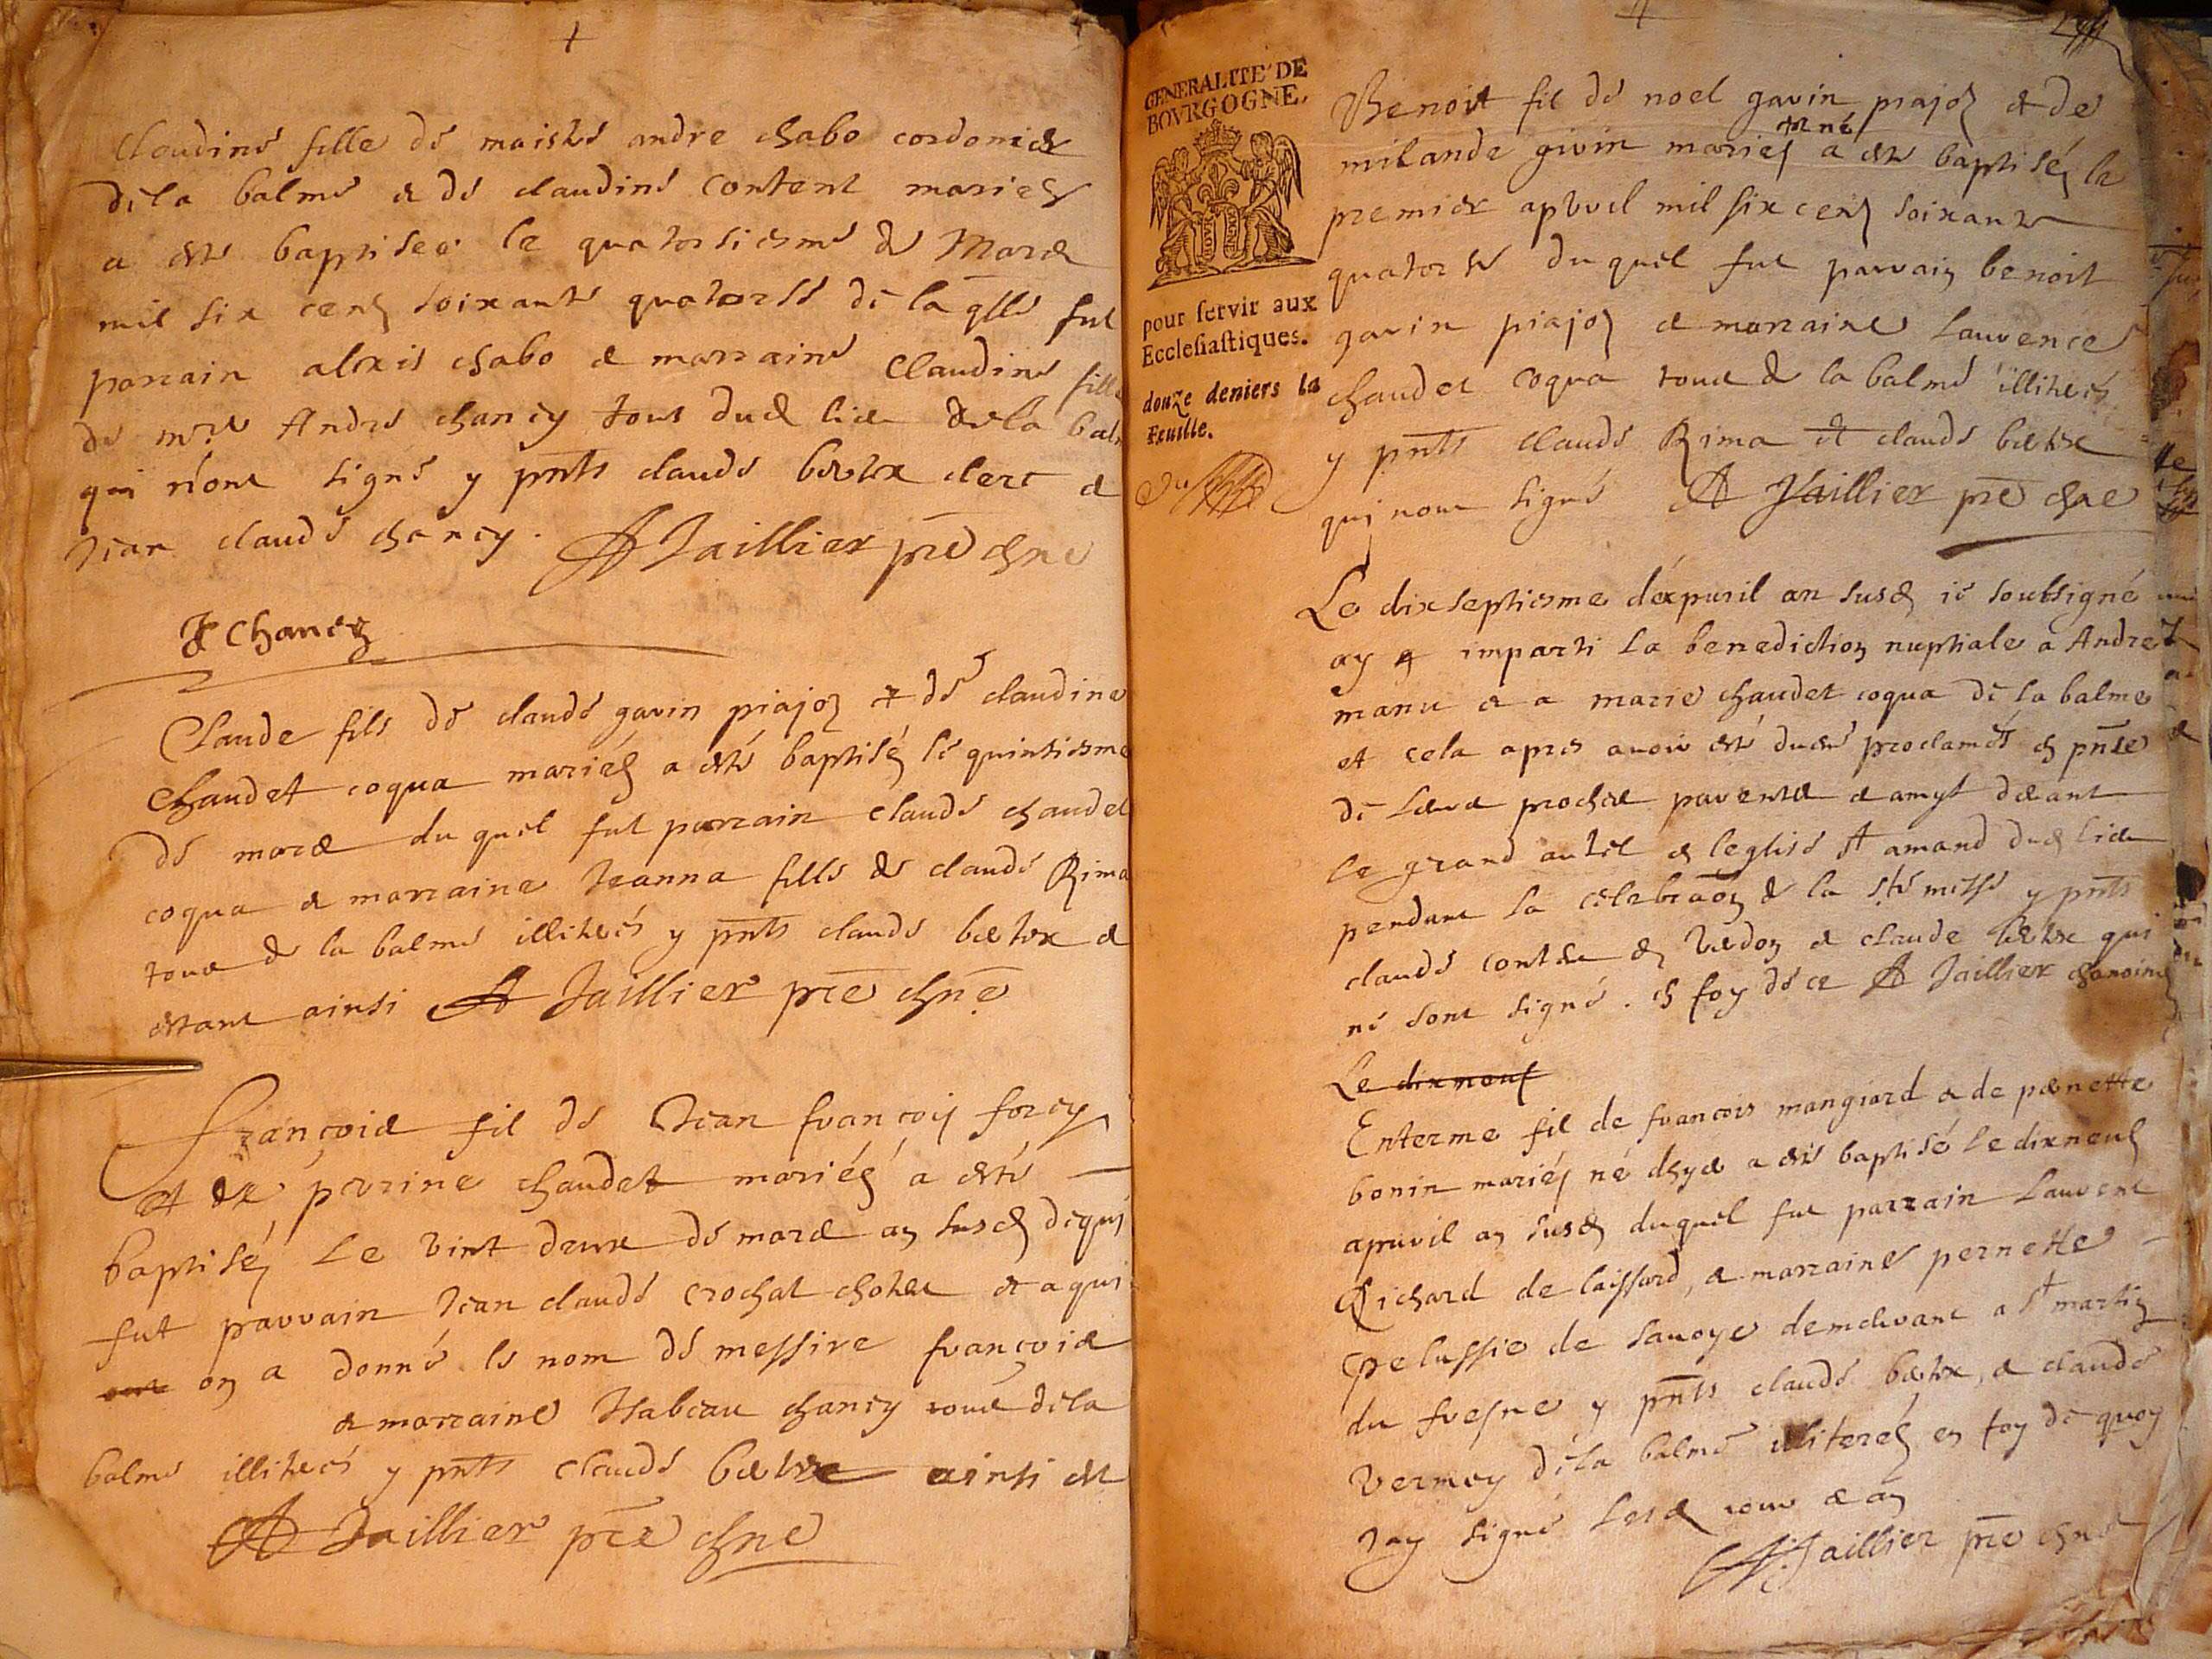 Claudine fille de maistre andre chabo cordonier
de la balme & de claudine content mariez
a este baptisee le quatorsiesme de Mars
mil six cens soixante quatorse de laqlle fut
parrain alexis chabo & marraine Claudine fille
de mre Andre chancy tous dud lieu de la balme
qui n'ont signé y pnts claude clerc &
Jean claude chancy. A Jaillier pre chne
J C Chancy
Claude fils de claude gavin piajon & de claudine
chaudet coqua mariés a esté baptisé le quinsiesme
de mars du quel fut parrain claude chaudet
coqua & marraine Jeanna fille de claude Rima
tous de la balme illiterés y pnts claude &
estant ainsi A Jaillier pre chne
François fil de Jean françois forey
et de perrine chaudet mariés a esté
baptisé le vint deux de mars an susd de qui
fut parrain Jean claude crochat & a qui
on a donné le nom de messire françois
& marraine Isabeau chancy tous de la
balme illiterés y pnts claude ainsi est
A Jaillier pre chne
GENERALITE DE
BOVRGOGNE.
pour servir aux
Ecclesiastiques.
douze deniers la
Feuille.
Benoit fil de noel gavin piajon & de
givin mariés a esté baptisé le
et né
premier apvril mil six cens soixante
quatorse du quel fut parrain benoit
gavin piajon & marraine Laurence
chaudet coqua tous de la balme illiterés
y pnts claude Rima et claude
qui n'ont signé A Jaillier pre chne
Le dixseptiesme d'apvril an susd je soubsigné
ay imparti la benediction nuptiale a André
manu & a marie chaudet coqua de la balme
et cela apres avoir esté proclamés en pnce
de leurs proches parents & amys devant
le grand autel de leglise st amand dud lieu
pendant la celebraon de la ste messe y pnts
claude de & claude qui
ne sont signé. en foy de ce A Jaillier chanoine
Le dixneuf
Enterme fil de francois mangiard & de pernette
bonin mariés né a esté baptisé le dixneuf
apvril an susd duquel fut parrain Laurent
Richard de laissard, & marraine pernette
pelussie de savoye demeurant a st martin
du fresne y pnts claude, & claude
vermey de la balme illiterés en foy de quoy
Jay signé lesd jour & an
A Jaillier pre chne